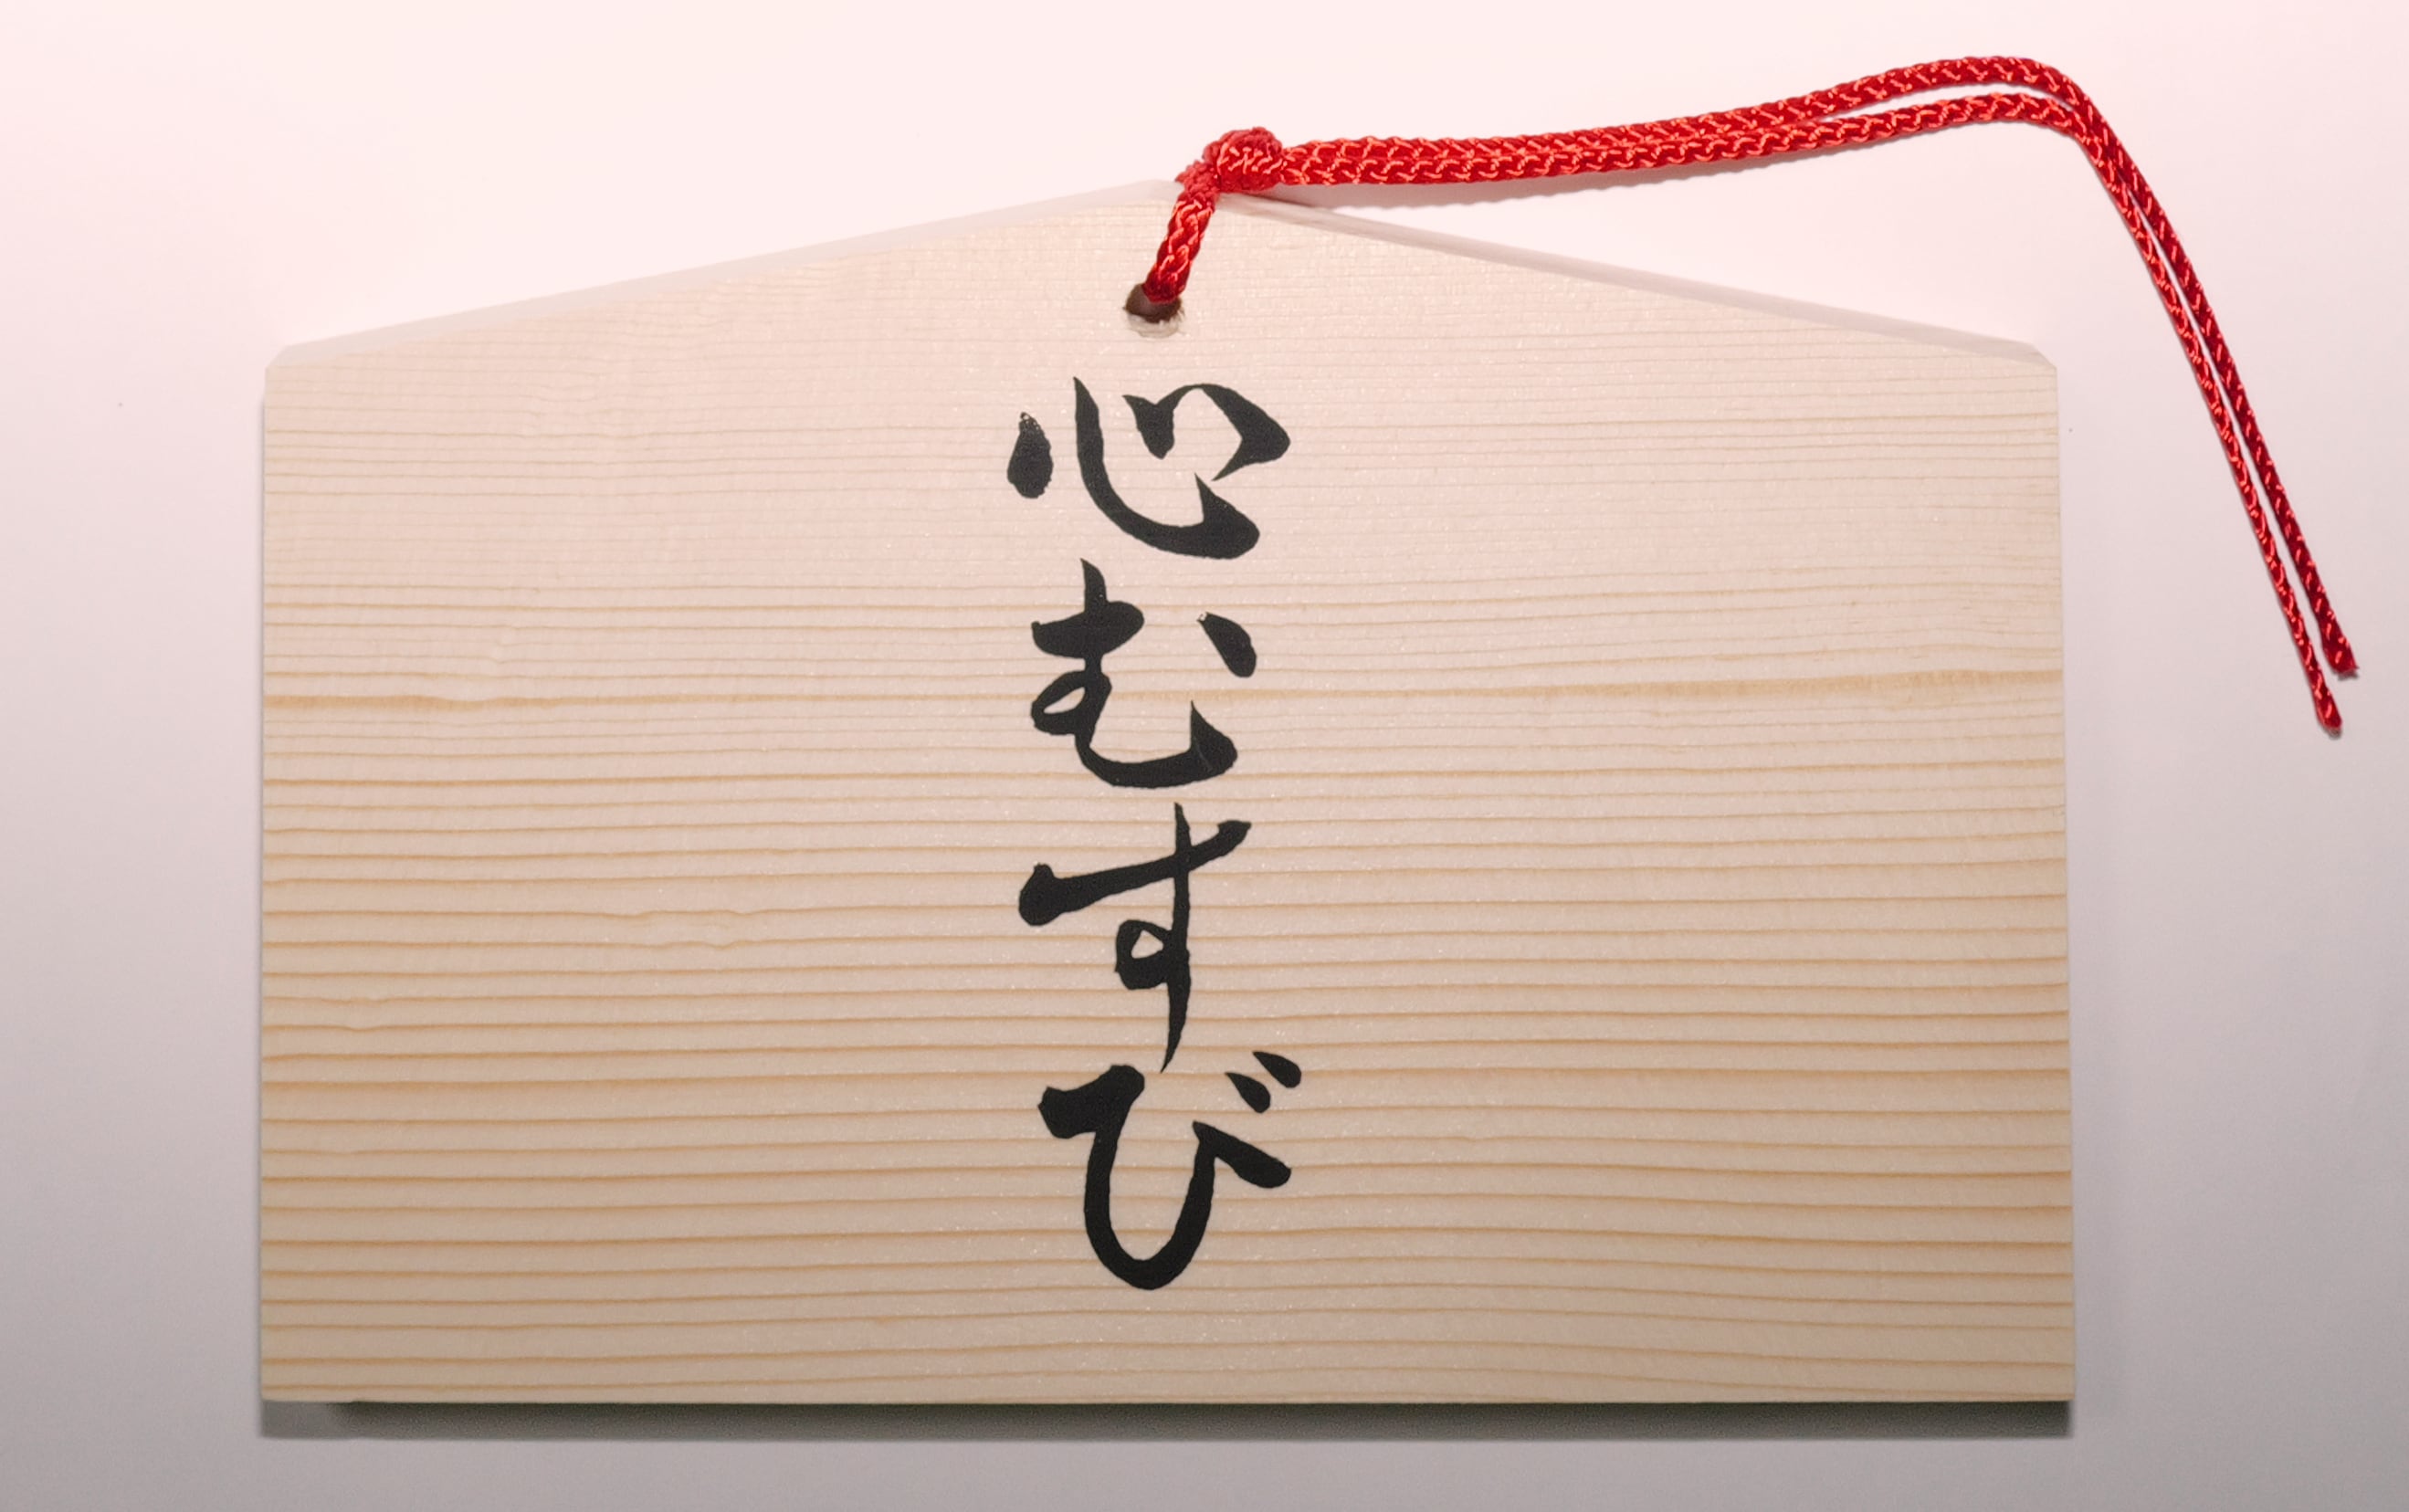 心むすび